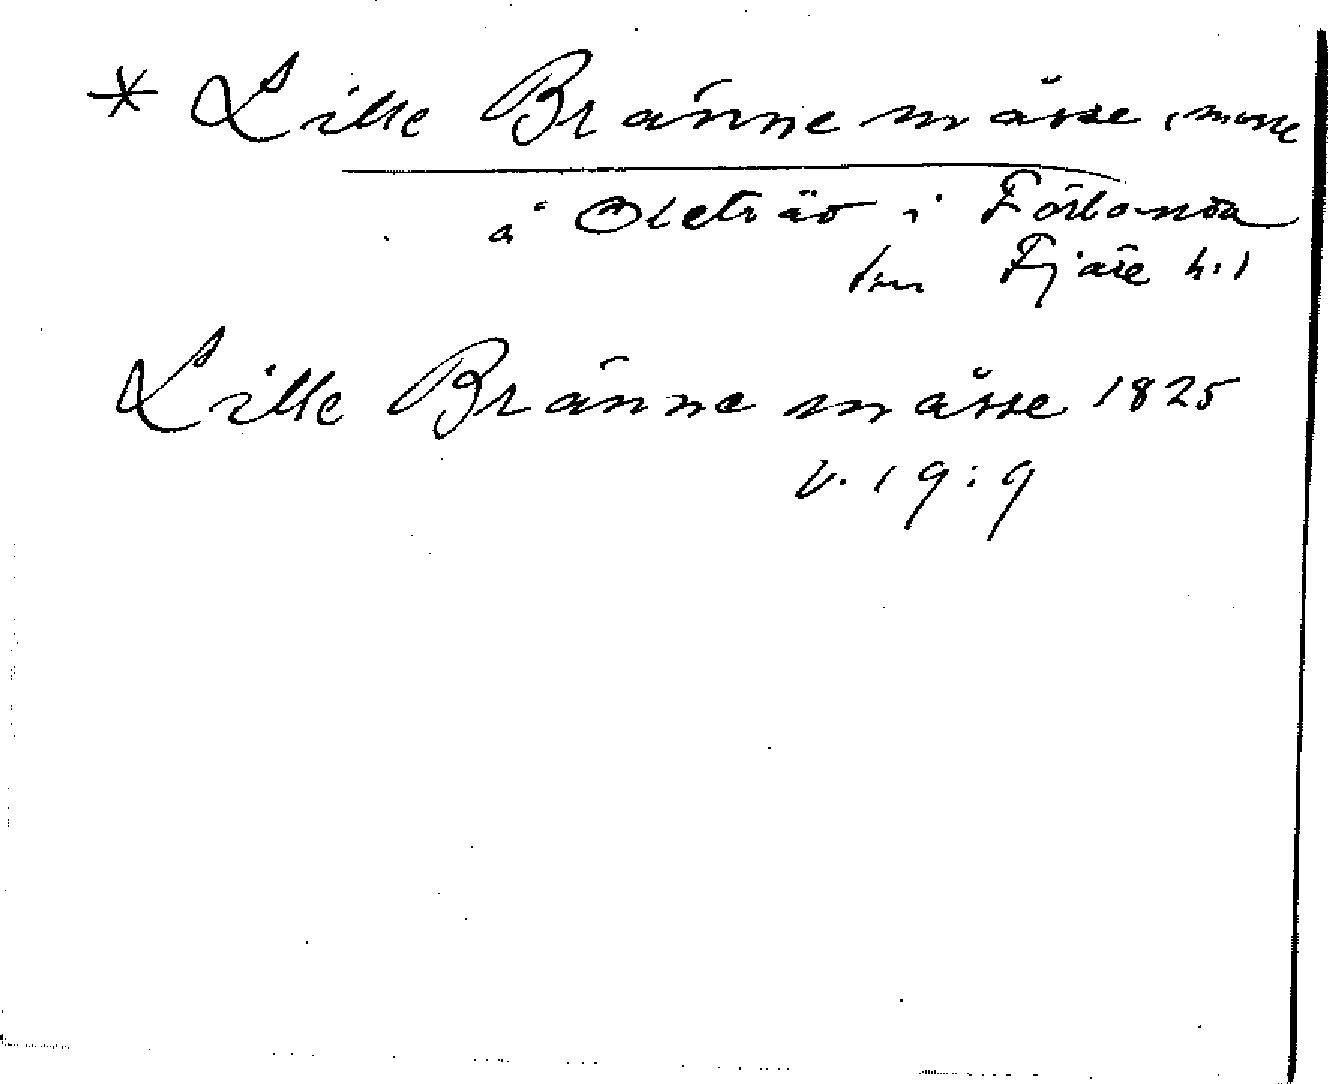 * Lille Bränne måsse, mosse
å Oleträo i Förlanda
sn Fjäre h:d
Lille Bränne måsse 1825
V. 19:9